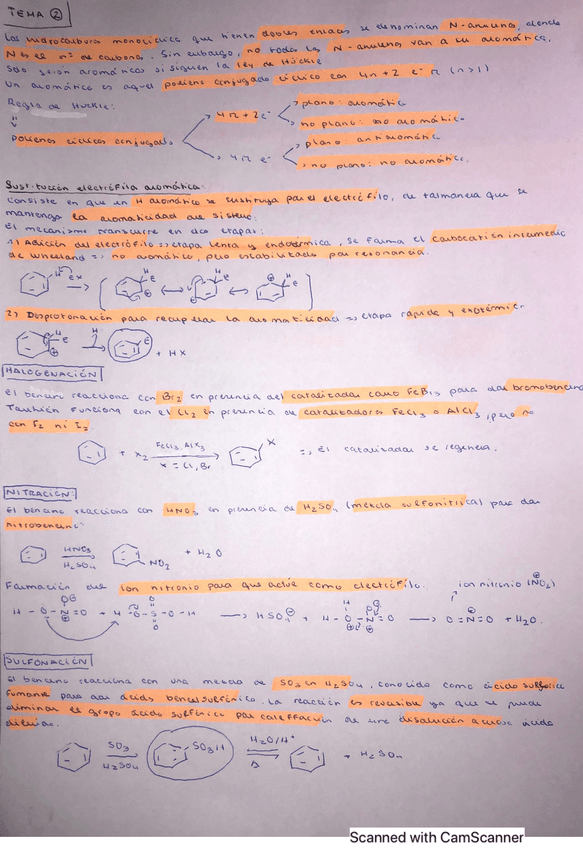 TEMA 2
Los hidrocarburos monocíclicos que tienen dobles enlaces se denominan N-anulenos, siendo
N es el nº de carbonos. Sin embargo, no todos los N-anulenos van a ser aromáticos,
solo serán aromáticos si siguen la ley de Hückle
Un aromático es aquel polieno conjugado cíclico con 4n+2 e- π (n>1)
Regla de Huckle:
4n+2e-
plano: aromático
no plano: no aromático
polienos cíclicos conjugados
4n e-
plano: antiaromático
no plano: no aromático.
Sustitución electrófila aromática:
Consiste en que un H aromático se sustituya por el electrófilo, de tal manera que se
mantenga la aromaticidad del sistema.
El mecanismo transcurre en dos etapas:
1) Adición del electrófilo => etapa lenta y endotérmica, se forma el carbocatión intermedio
de Wheeland => no aromático, pero estabilizado por resonancia.
H EX H E H E H E
2) Desprotonación para recuperar la aromaticidad => etapa rápida y exotérmica
H E E + HX
HALOGENACIÓN
El benceno reacciona con Br2 en presencia del catalizador como FeBr3 para dar bromobenceno
También funciona con el Cl2 en presencia de catalizadores FeCl3 o AlCl3, pero no
con F2 ni I2
+ X2 FeCl3, AlX3 X = Cl, Br X => El catalizador se regenera.
NITRACIÓN:
El benceno reacciona con HNO3 en presencia de H2SO4 (mezcla sulfonítrica) para dar
nitrobenceno:
HNO3 H2SO4 NO2 + H2O
Formación del ion nitronio para que actúe como electrófilo. ion nitronio (NO2)
H-O-N=O + H-O-S-O-H → HSO4 + H-O-N=O → O=N=O + H2O.
SULFONACIÓN
El benceno reacciona con una mezcla de SO3 en H2SO4, conocido como ácido sulfúrico
fumante para dar ácidos bencelsulfínico. La reacción es reversible ya que se puede
eliminar el grupo ácido sulfínico por calefacción de una disolución acuosa ácido
diluido.
SO3 H2SO4 SO3H H2O/H+ Δ + H2SO4
Scanned with CamScanner